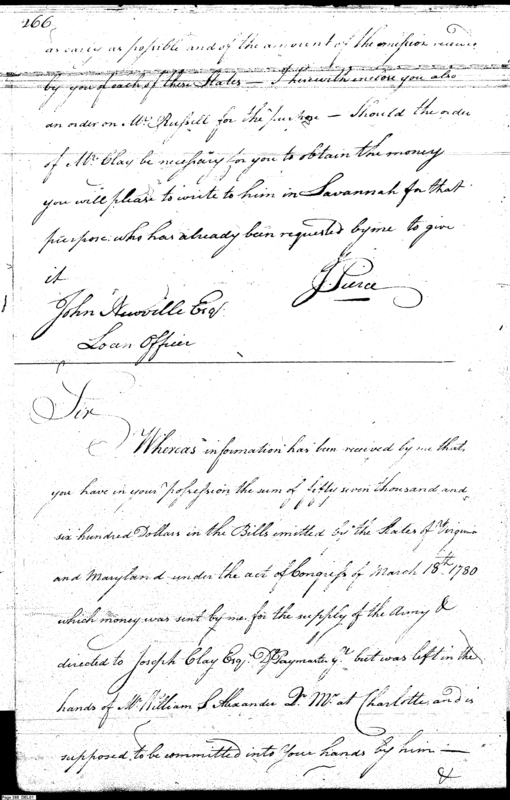 266
as early as possible and of the amount of the emission received
by you of each of these States — I herewith inclose you also
an order on Mr. Russell for the purpose — Should the order
of Mr. Clay be necessary for you to obtain the money
you will please to write to him in Savannah for that
purpose who has already been requested by me to give
it
J. Pierce
John Neuville Esqr.
Loan Officer
Sir
Whereas information has been received by me that
you have in your possession the sum of fifty seven thousand and
six hundred Dollars in the Bills emitted by the States of Virginia
and Maryland under the act of Congress of March 18th 1780
which money was sent by me for the supply of the Army &
directed to Joseph Clay Esqr. Dy Paymaster Gl. but was left in the
hands of Mr. William S Alexander Qr. Mr. at Charlotte, and is
supposed to be committed into your hands by him —
&
Page 266